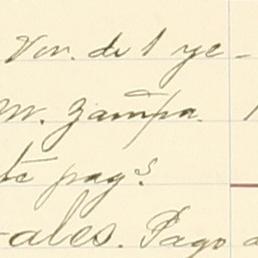 Von. de 1 ye-
M. Zampa.
te pag.s
ales. Pago